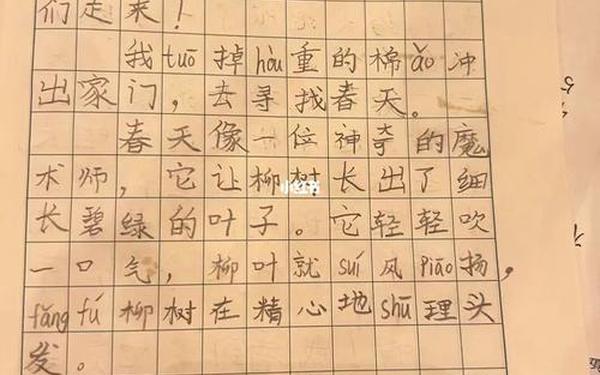 们走来！
我tuō掉hòu重的棉ǎo冲
出家门，去寻找春天。
春天像一位神奇的魔
术师，它让柳树长出了细
长碧绿的叶子。它轻轻吹
一口气，柳叶就suí风piāo扬，
fǎng fú柳树在精心地shū理头
发。
小红书